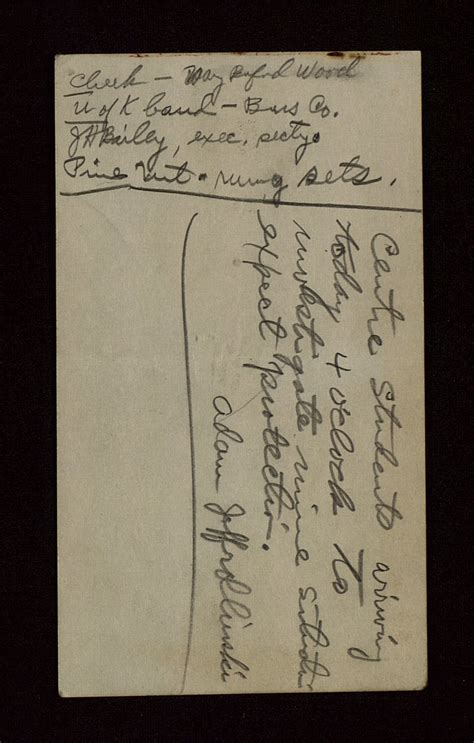 Check - Way Buford Wood
U of K band - Bus Co.
J H Bailey, exec. secty.
Pine Mt. - sets.
Centre Students arriving
today 4 o'clock to
investigate mine situati
expect protection.
Adam